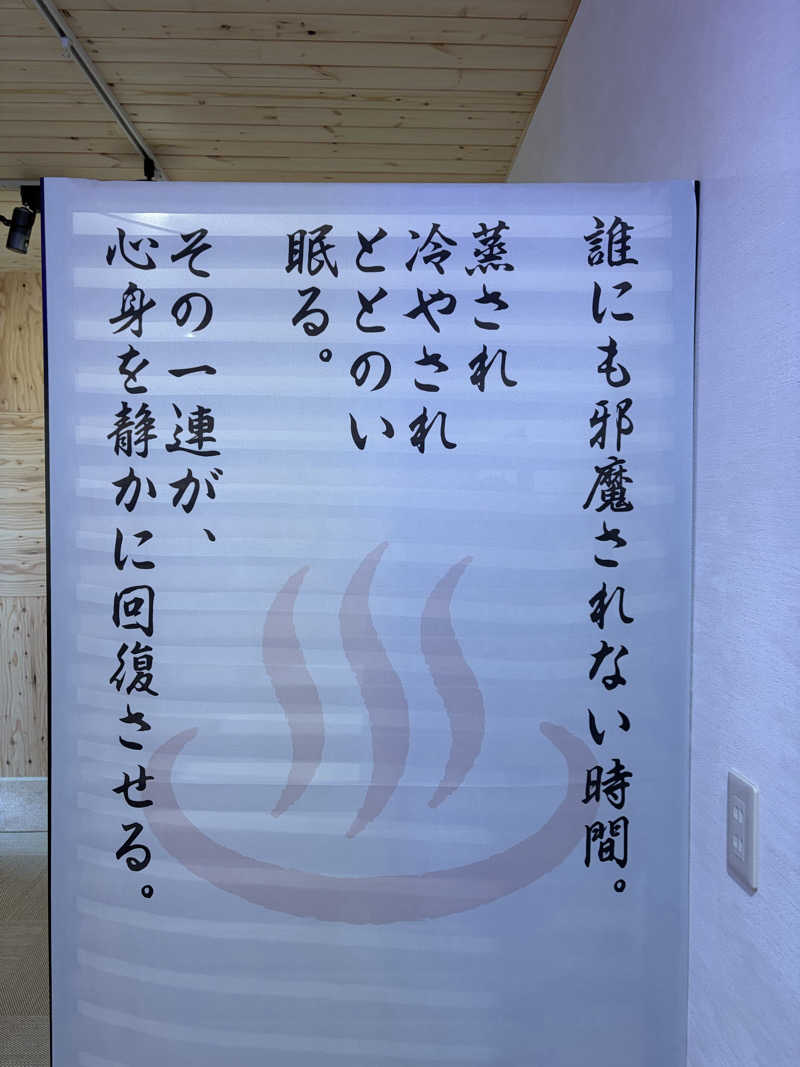 誰にも邪魔されない時間。
蒸され
冷やされ
ととのい
眠る。
その一連が、
心身を静かに回復させる。